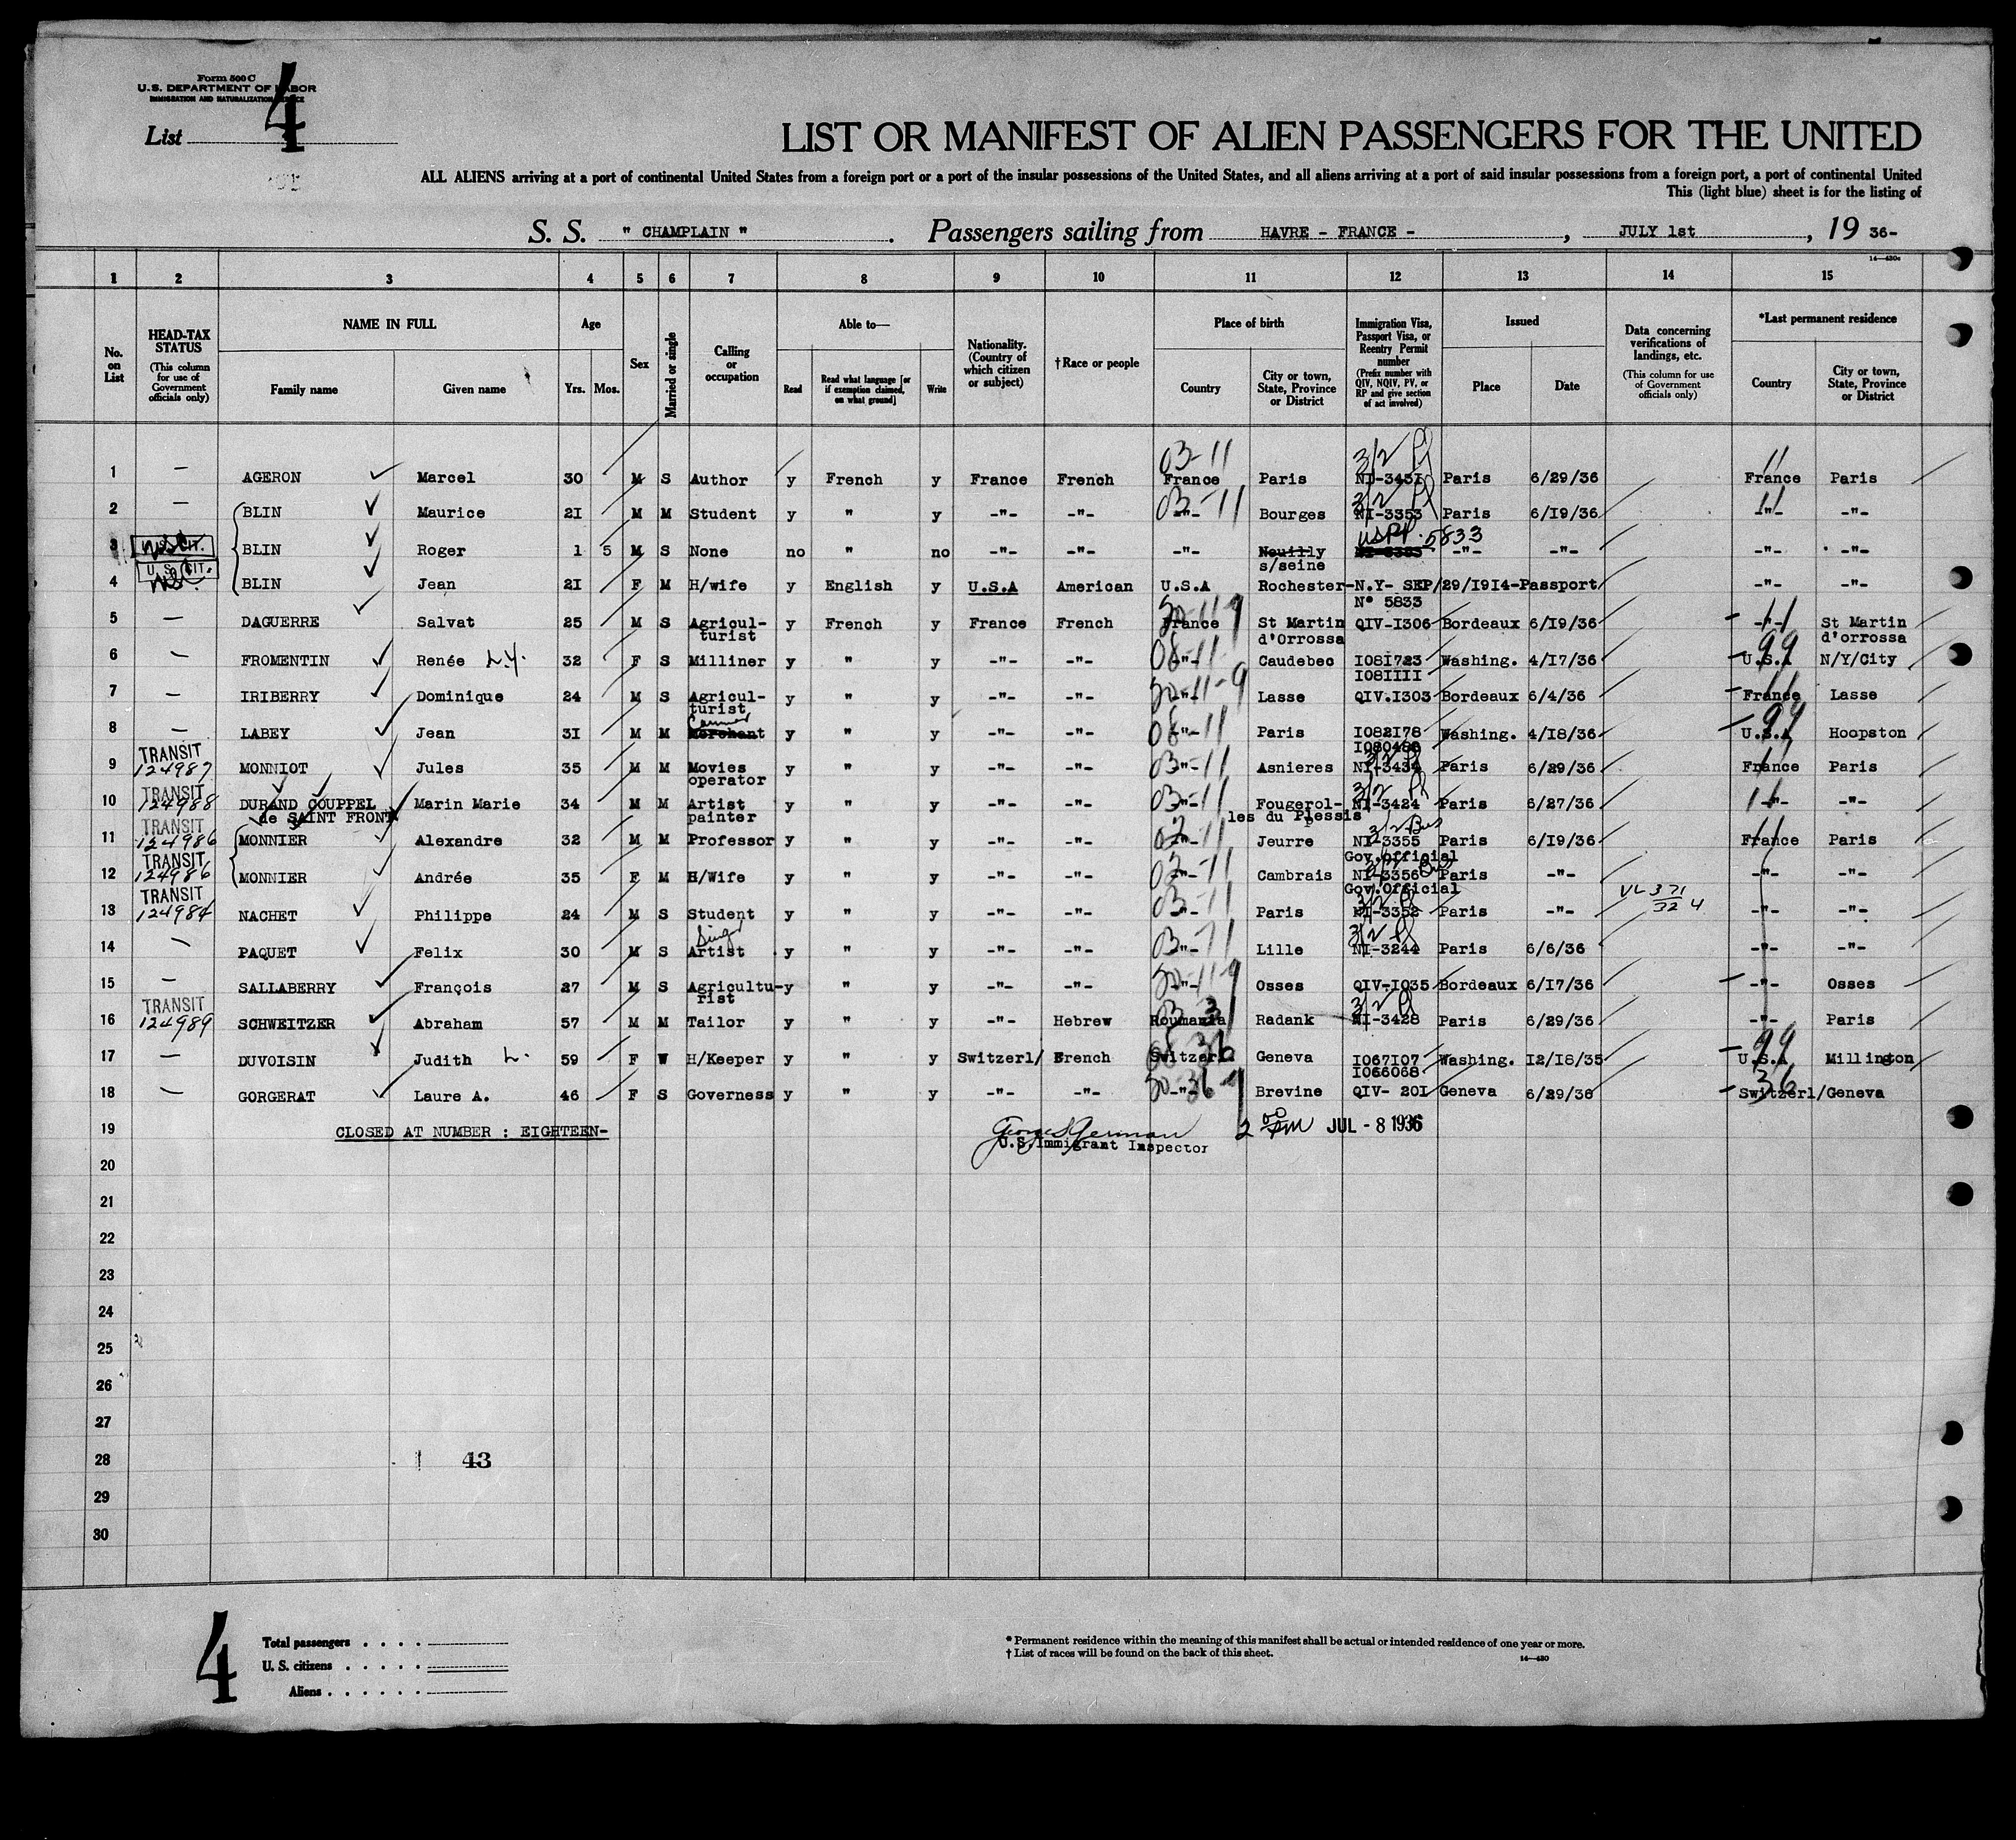 Form 500 C
U.S. DEPARTMENT OF LABOR
IMMIGRATION AND NATURALIZATION SERVICE
List 4
LIST OR MANIFEST OF ALIEN PASSENGERS FOR THE UNITED
ALL ALIENS arriving at a port of continental United States from a foreign port or a port of the insular possessions of the United States, and all aliens arriving at a port of said insular possessions from a foreign port, a port of continental United
This (light blue) sheet is for the listing of
S. S. " CHAMPLAIN " . Passengers sailing from HAVRE - FRANCE - , JULY 1st , 19 36-
1 2 3 4 5 6 7 8 9 10 11 12 13 14 15
No. on List
HEAD-TAX STATUS (This column for use of Government officials only)
NAME IN FULL Family name Given name
Age Yrs. Mos.
Sex
Married or single
Calling or occupation
Able to— Read Read what language [or if exemption claimed, on what ground] Write
Nationality. (Country of which citizen or subject)
†Race or people
Place of birth Country City or town, State, Province or District
Immigration Visa, Passport Visa, or Reentry Permit number (Prefix number with QIV, NQIV, PV, or RP and give section of act involved)
Issued Place Date
Data concerning verifications of landings, etc. (This column for use of Government officials only)
*Last permanent residence Country City or town, State, Province or District
03-11 3/2 11
1 — AGERON Marcel 30 M S Author y French y France French France Paris NI-3451 Paris 6/29/36 France Paris
2 — BLIN Maurice 21 M M Student y " y -"- -"- -"- Bourges NI-3353 Paris 6/19/36 -"- -"-
USPP. 5833
3 U. S. CIT. BLIN Roger 1 5 M S None no " no -"- -"- -"- Neuilly s/seine -"- -"- -"- -"-
4 U. S. CIT. BLIN Jean 21 F M H/wife y English y U.S.A American U.S.A Rochester-N.Y- SEP/29/1914-Passport -"- -"-
N° 5833
5 — DAGUERRE Salvat 25 M S Agricul-turist y French y France French France St Martin d'Orrossa QIV-1306 Bordeaux 6/19/36 -"- St Martin d'orrossa
6 — FROMENTIN Renée 32 F S Milliner y " y -"- -"- -"- Caudebec 1081723 1081111 Washing. 4/17/36 U.S.A N/Y/City
7 — IRIBERRY Dominique 24 M S Agricul-turist y " y -"- -"- -"- Lasse QIV.1303 Bordeaux 6/4/36 France Lasse
8 — LABEY Jean 31 M M Merchant y " y -"- -"- -"- Paris 1082178 Washing. 4/18/36 U.S.A Hoopston
9 TRANSIT 124987 MONNIOT Jules 35 M M Movies operator y " y -"- -"- -"- Asnieres NI-3434 Paris 6/29/36 France Paris
10 TRANSIT 124988 DURAND COUPPEL de SAINT FRONT Marin Marie 34 M M Artist painter y " y -"- -"- -"- Fougerol-les du Plessis NI-3424 Paris 6/27/36 -"- -"-
11 TRANSIT 124986 MONNIER Alexandre 32 M M Professor y " y -"- -"- -"- Jeurre NI-3355 Paris 6/19/36 France Paris
Gov.official
12 TRANSIT 124986 MONNIER Andrée 35 F M H/Wife y " y -"- -"- -"- Cambrais NI-3356 Paris -"- -"- -"-
Gov.Official
13 TRANSIT 124984 NACHET Philippe 24 M S Student y " y -"- -"- -"- Paris NI-3352 Paris -"- -"- -"-
14 — PAQUET Felix 30 M S Artist y " y -"- -"- -"- Lille NI-3244 Paris 6/6/36 -"- -"-
15 — SALLABERRY François 27 M S Agricultu-rist y " y -"- -"- -"- Osses QIV-1035 Bordeaux 6/17/36 -"- Osses
16 TRANSIT 124989 SCHWEITZER Abraham 57 M M Tailor y " y -"- Hebrew Roumania Radank NI-3428 Paris 6/29/36 -"- Paris
17 — DUVOISIN Judith 59 F W H/Keeper y " y Switzerl/ French Switzerl Geneva 1067107 1066068 Washing. 12/18/35 U.S.A Millington
18 — GORGERAT Laure A. 46 F S Governess y " y -"- -"- -"- Brevine QIV- 201 Geneva 6/29/36 Switzerl/Geneva
19 CLOSED AT NUMBER : EIGHTEEN- U.S. Immigrant Inspector JUL - 8 1936
20
21
22
23
24
25
26
27
28 43
29
30
4
Total passengers . . . .
U. S. citizens . . . . .
Aliens . . . . . .
* Permanent residence within the meaning of this manifest shall be actual or intended residence of one year or more.
† List of races will be found on the back of this sheet.